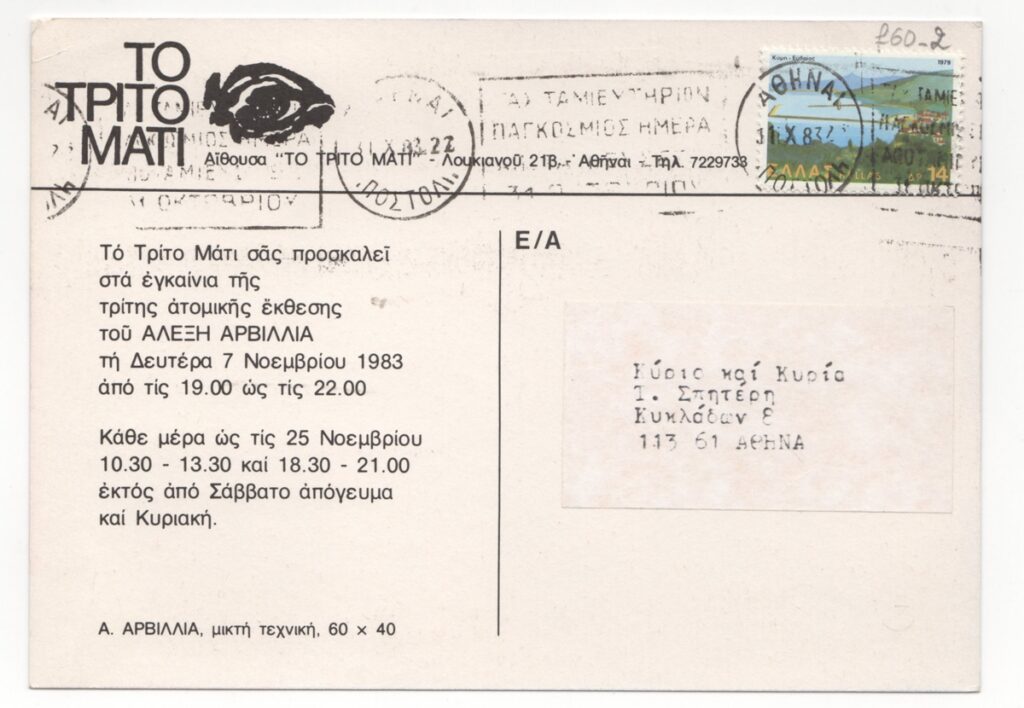 f60-2
ΤΟ
ΤΡΙΤΟ
ΜΑΤΙ
Αἴθουσα "ΤΟ ΤΡΙΤΟ ΜΑΤΙ" - Λουκιανοῦ 21β, - Ἀθῆναι - Τηλ. 7229733
Κύμη - Εὔβοιας 1979
ΕΛΛΑΣ HELLAS ΔΡ 14
ΑΘΗΝΑΙ
31.X 83.22
ΑΠΟΣΤΟΛΗ
ΤΑΜΙΕΥΤΗΡΙΟΝ
ΠΑΓΚΟΣΜΙΟΣ ΗΜΕΡΑ
ΑΠΟΤΑΜΙΕΥΣΕΩΣ
31 ΟΚΤΩΒΡΙΟΥ
Τό Τρίτο Μάτι σᾶς προσκαλεῖ
στά ἐγκαίνια τῆς
τρίτης ἀτομικῆς ἔκθεσης
τοῦ ΑΛΕΞΗ ΑΡΒΙΛΛΙΑ
τή Δευτέρα 7 Νοεμβρίου 1983
ἀπό τίς 19.00 ὡς τίς 22.00
Κάθε μέρα ὡς τίς 25 Νοεμβρίου
10.30 - 13.30 καί 18.30 - 21.00
ἐκτός ἀπό Σάββατο ἀπόγευμα
καί Κυριακή.
Α. ΑΡΒΙΛΛΙΑ, μικτή τεχνική, 60 × 40
Ε/Α
Κύριο καί Κυρία
Τ. Σπητέρη
Κυκλάδων 8
113 61 ΑΘΗΝΑ